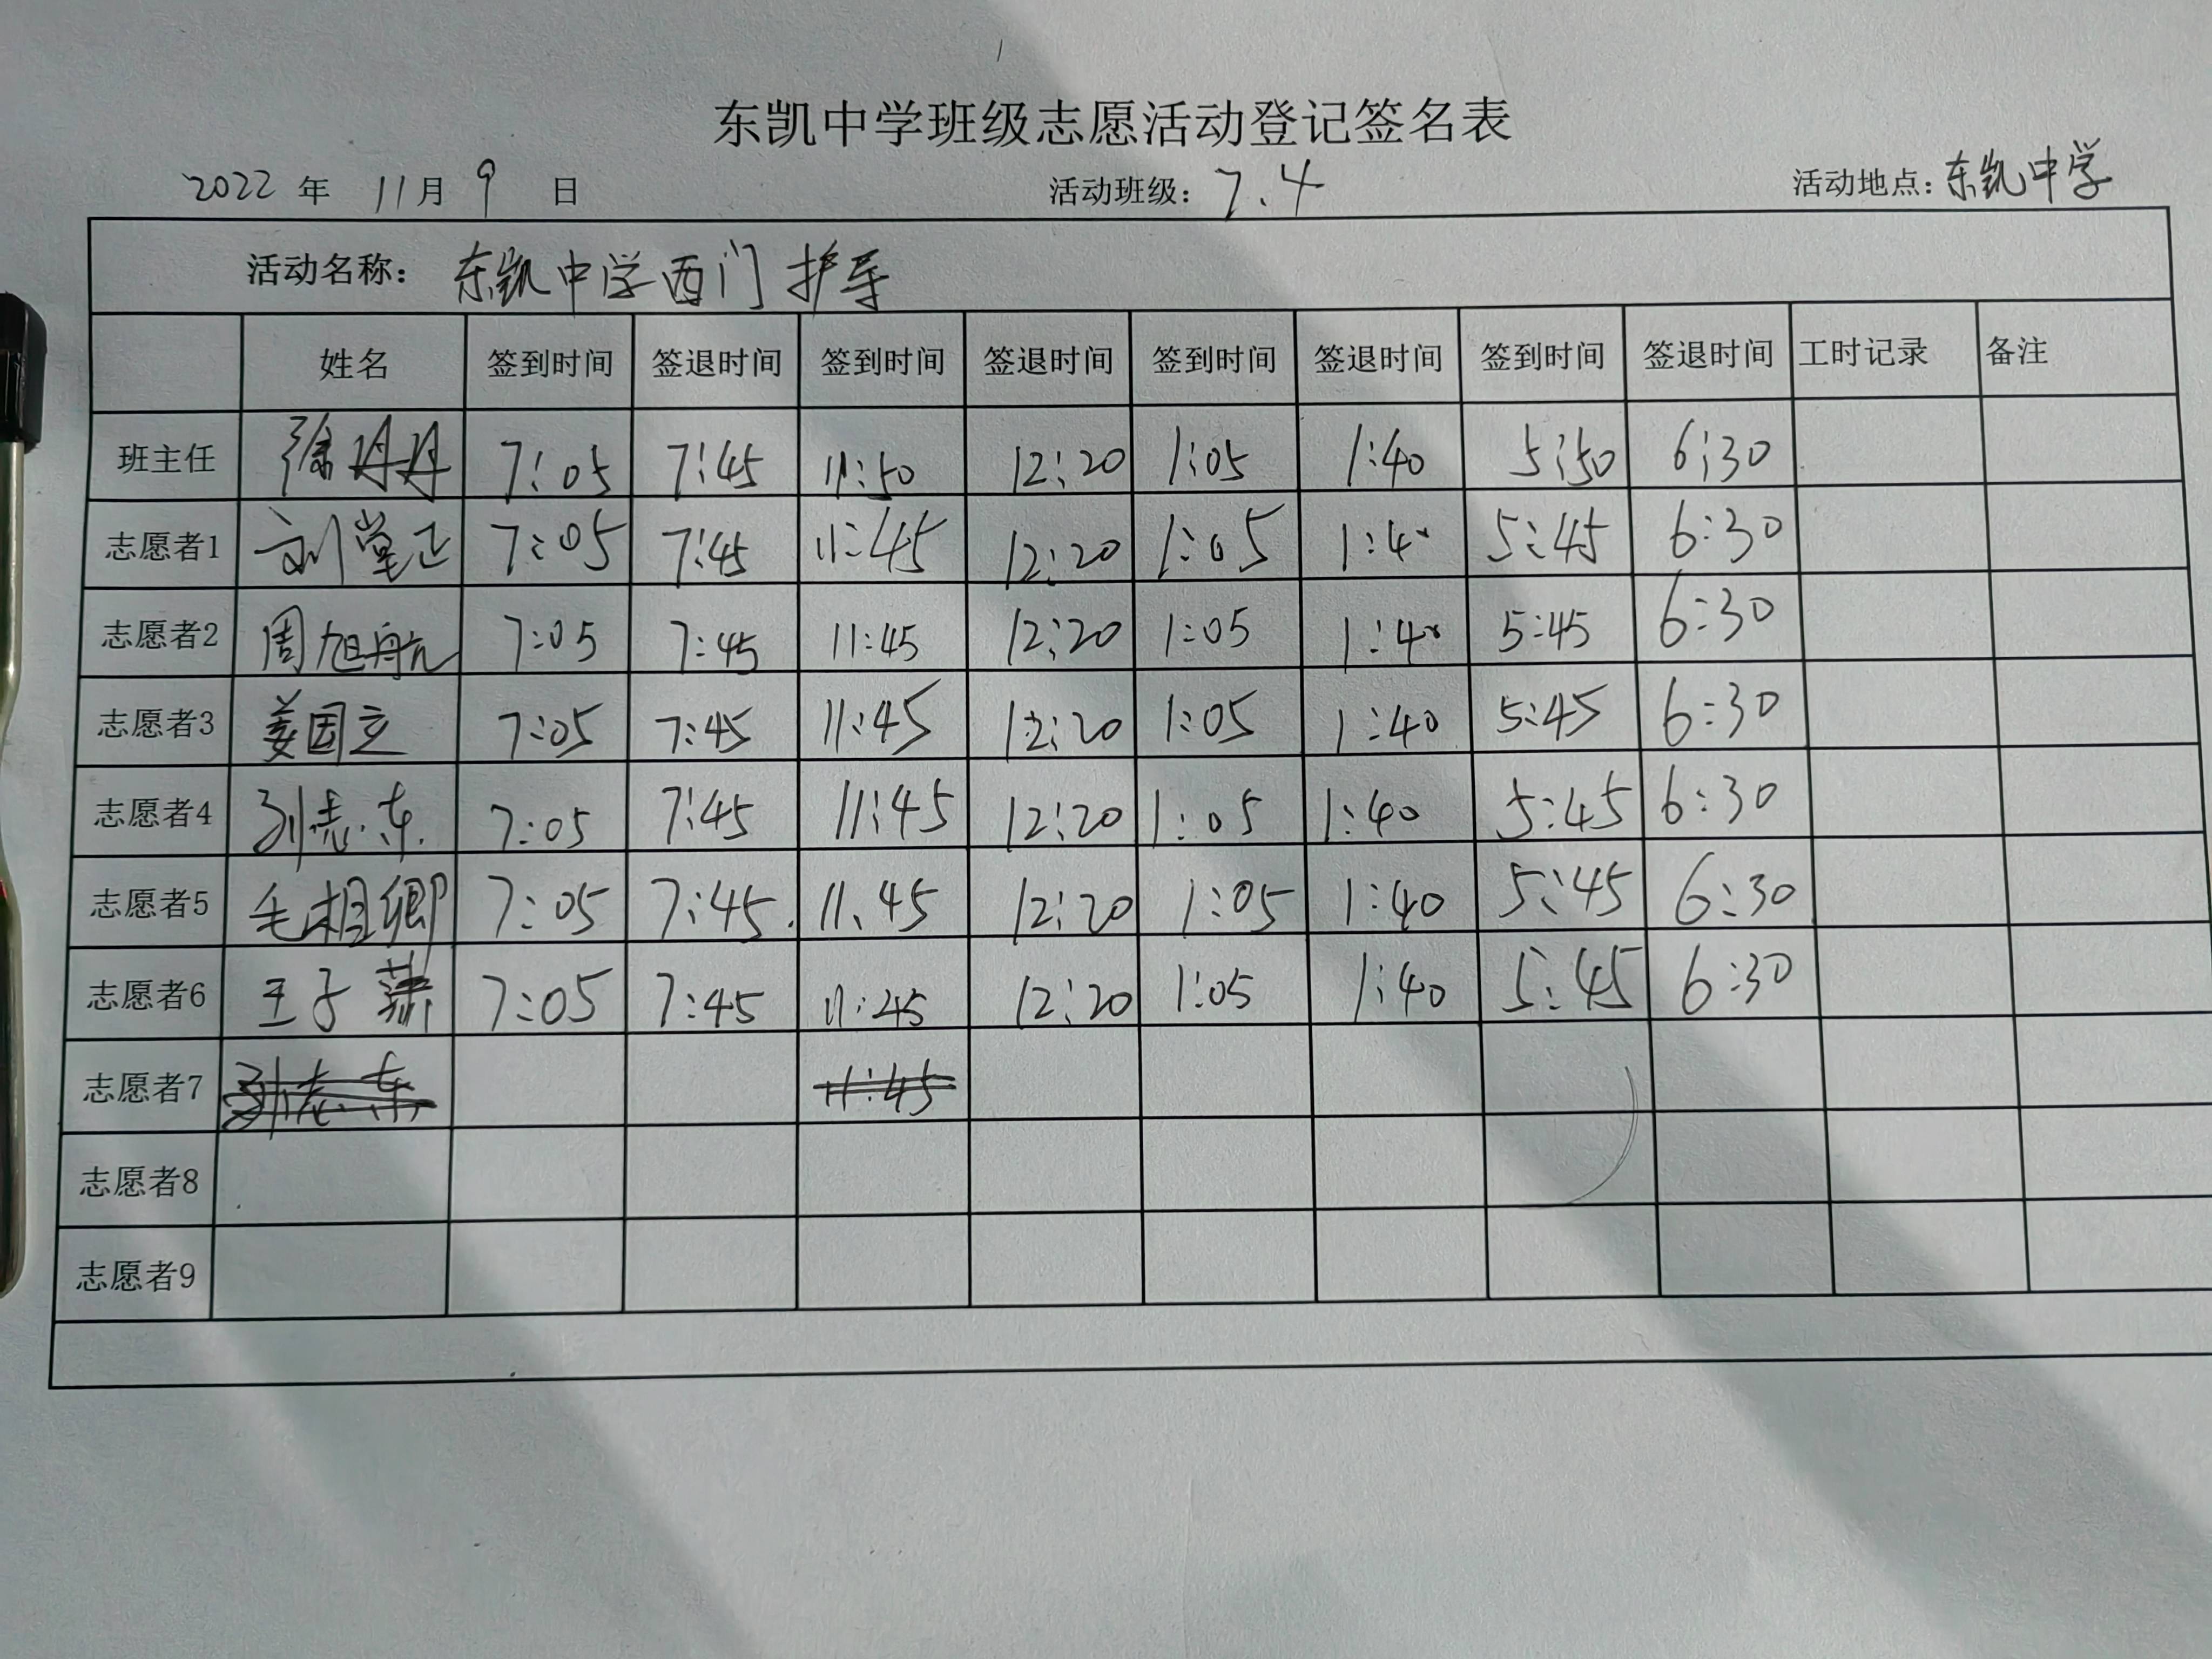 东凯中学班级志愿活动登记签名表
2022 年 11月 9 日 活动班级：7.4 活动地点：东凯中学
活动名称：东凯中学西门护导
姓名 签到时间 签退时间 签到时间 签退时间 签到时间 签退时间 签到时间 签退时间 工时记录 备注
班主任 徐丹丹 7:05 7:45 11:50 12:20 1:05 1:40 5:50 6:30
志愿者1 刘堂正 7:05 7:45 11:45 12:20 1:05 1:40 5:45 6:30
志愿者2 周旭航 7:05 7:45 11:45 12:20 1:05 1:40 5:45 6:30
志愿者3 姜国立 7:05 7:45 11:45 12:20 1:05 1:40 5:45 6:30
志愿者4 孙志东 7:05 7:45 11:45 12:20 1:05 1:40 5:45 6:30
志愿者5 毛相卿 7:05 7:45 11.45 12:20 1:05 1:40 5:45 6:30
志愿者6 7:05 7:45 11:45 12:20 1:05 1:40 5:45 6:30
志愿者7 孙志东 11:45
志愿者8
志愿者9